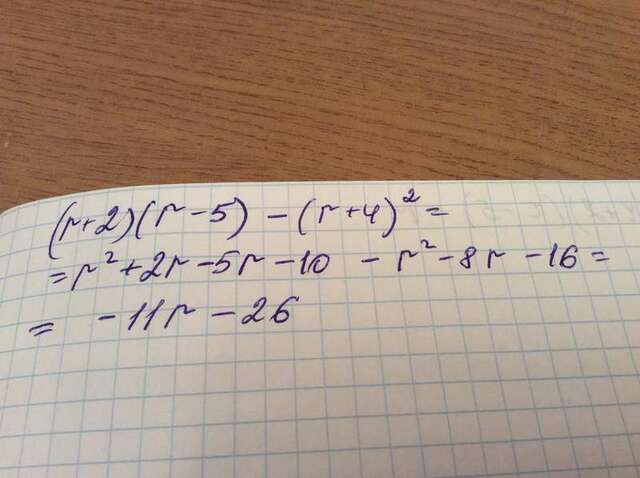 (r+2)(r-5) - (r+4)² =
= r² + 2r - 5r - 10 - r² - 8r - 16 =
= - 11r - 26